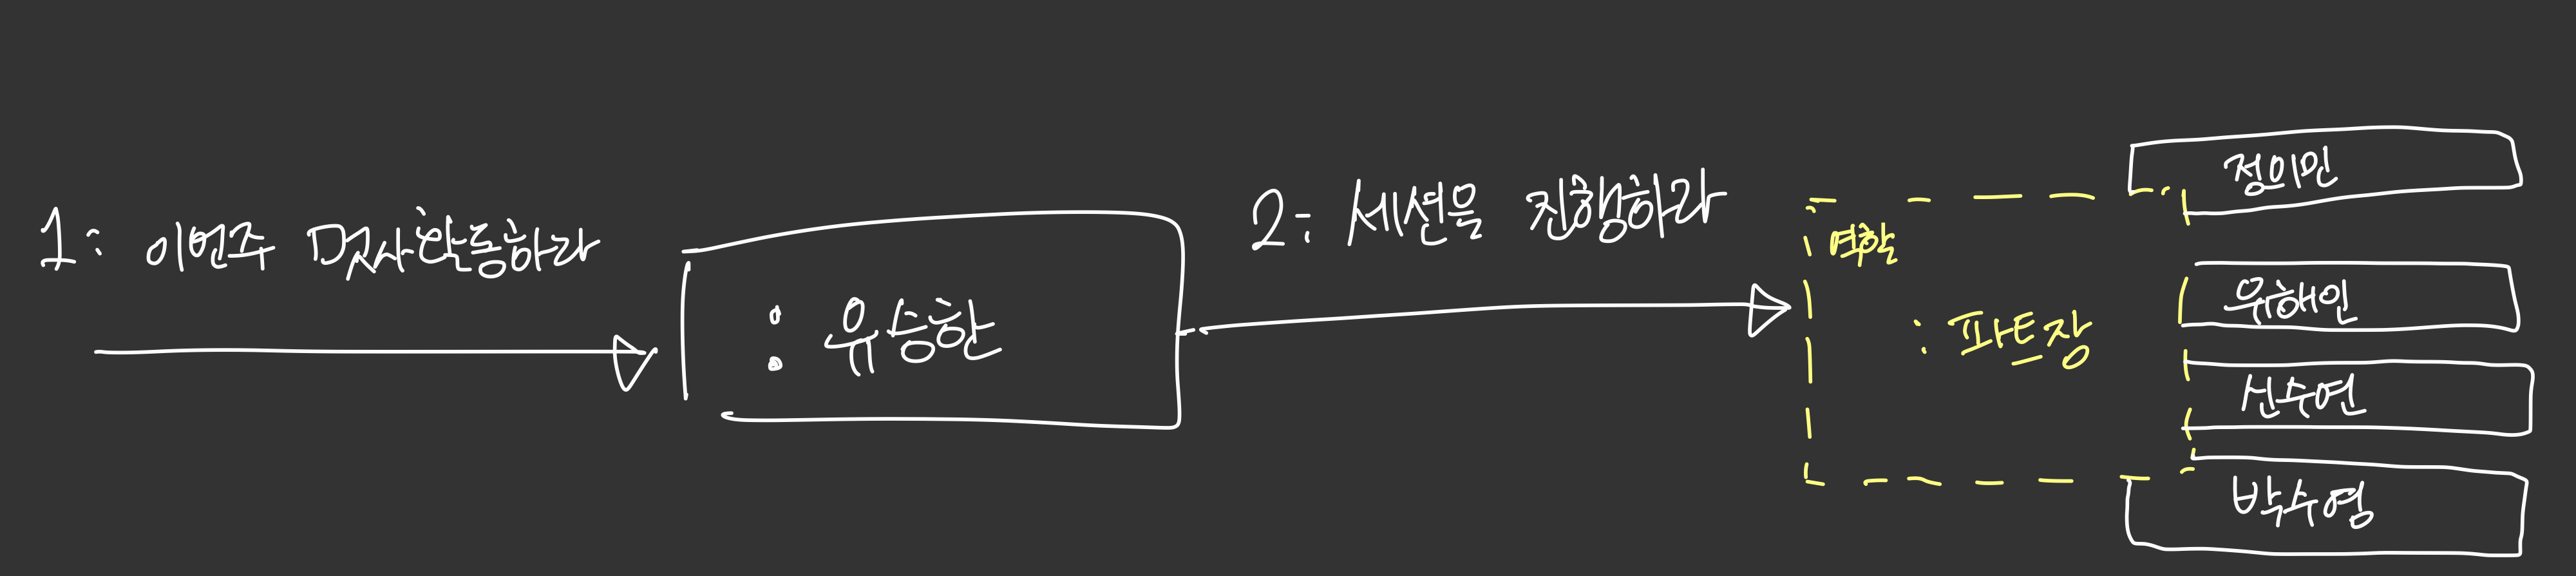 1: 이번주 DX사학동하라
: 유승한
2: 세션을 진행하라
역할
: 파트장
정이민
유해인
신수연
박수영